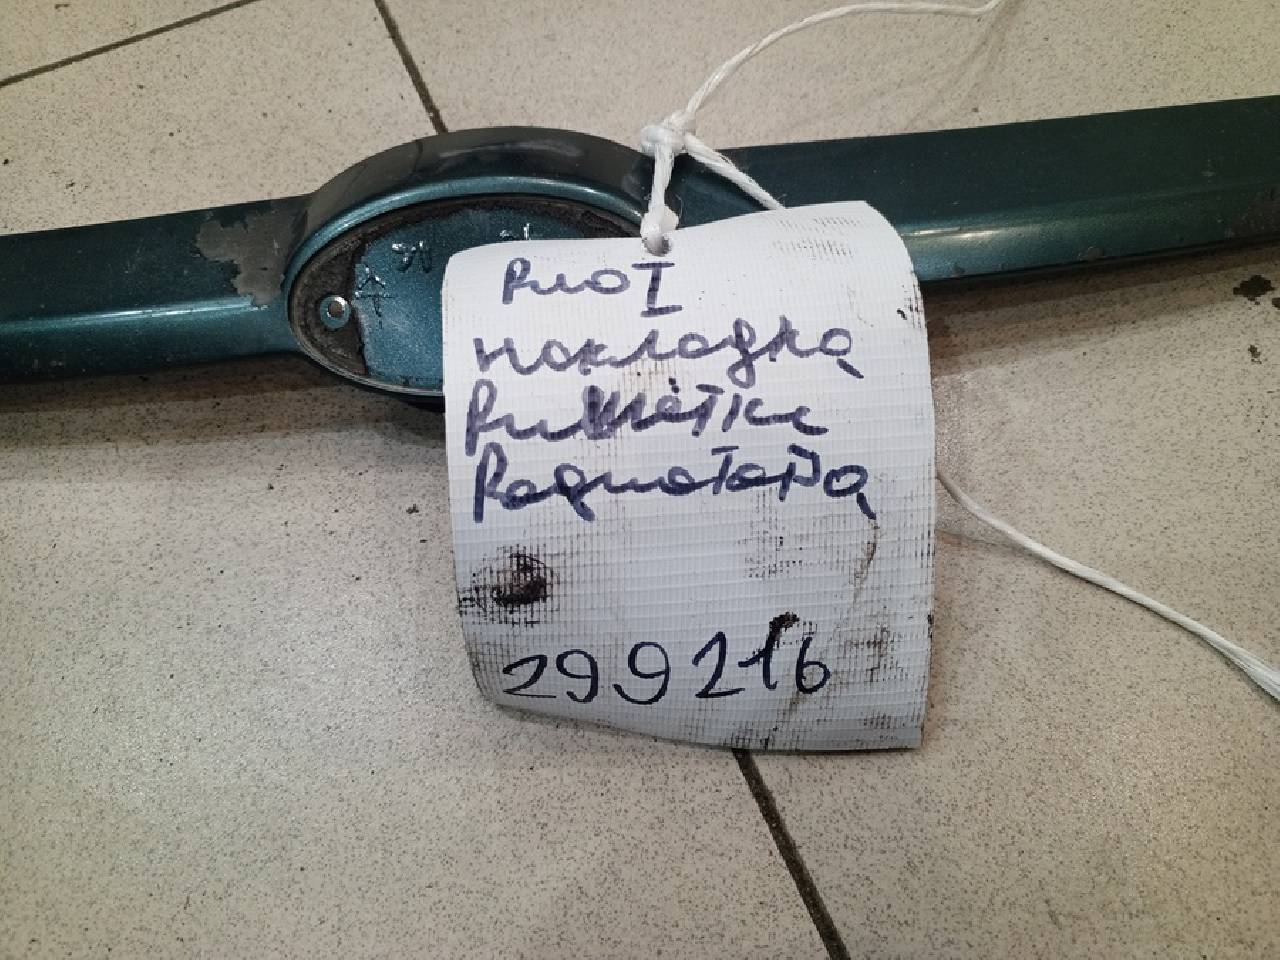 Рио I
накладка
Решётки
Радиатора
299216